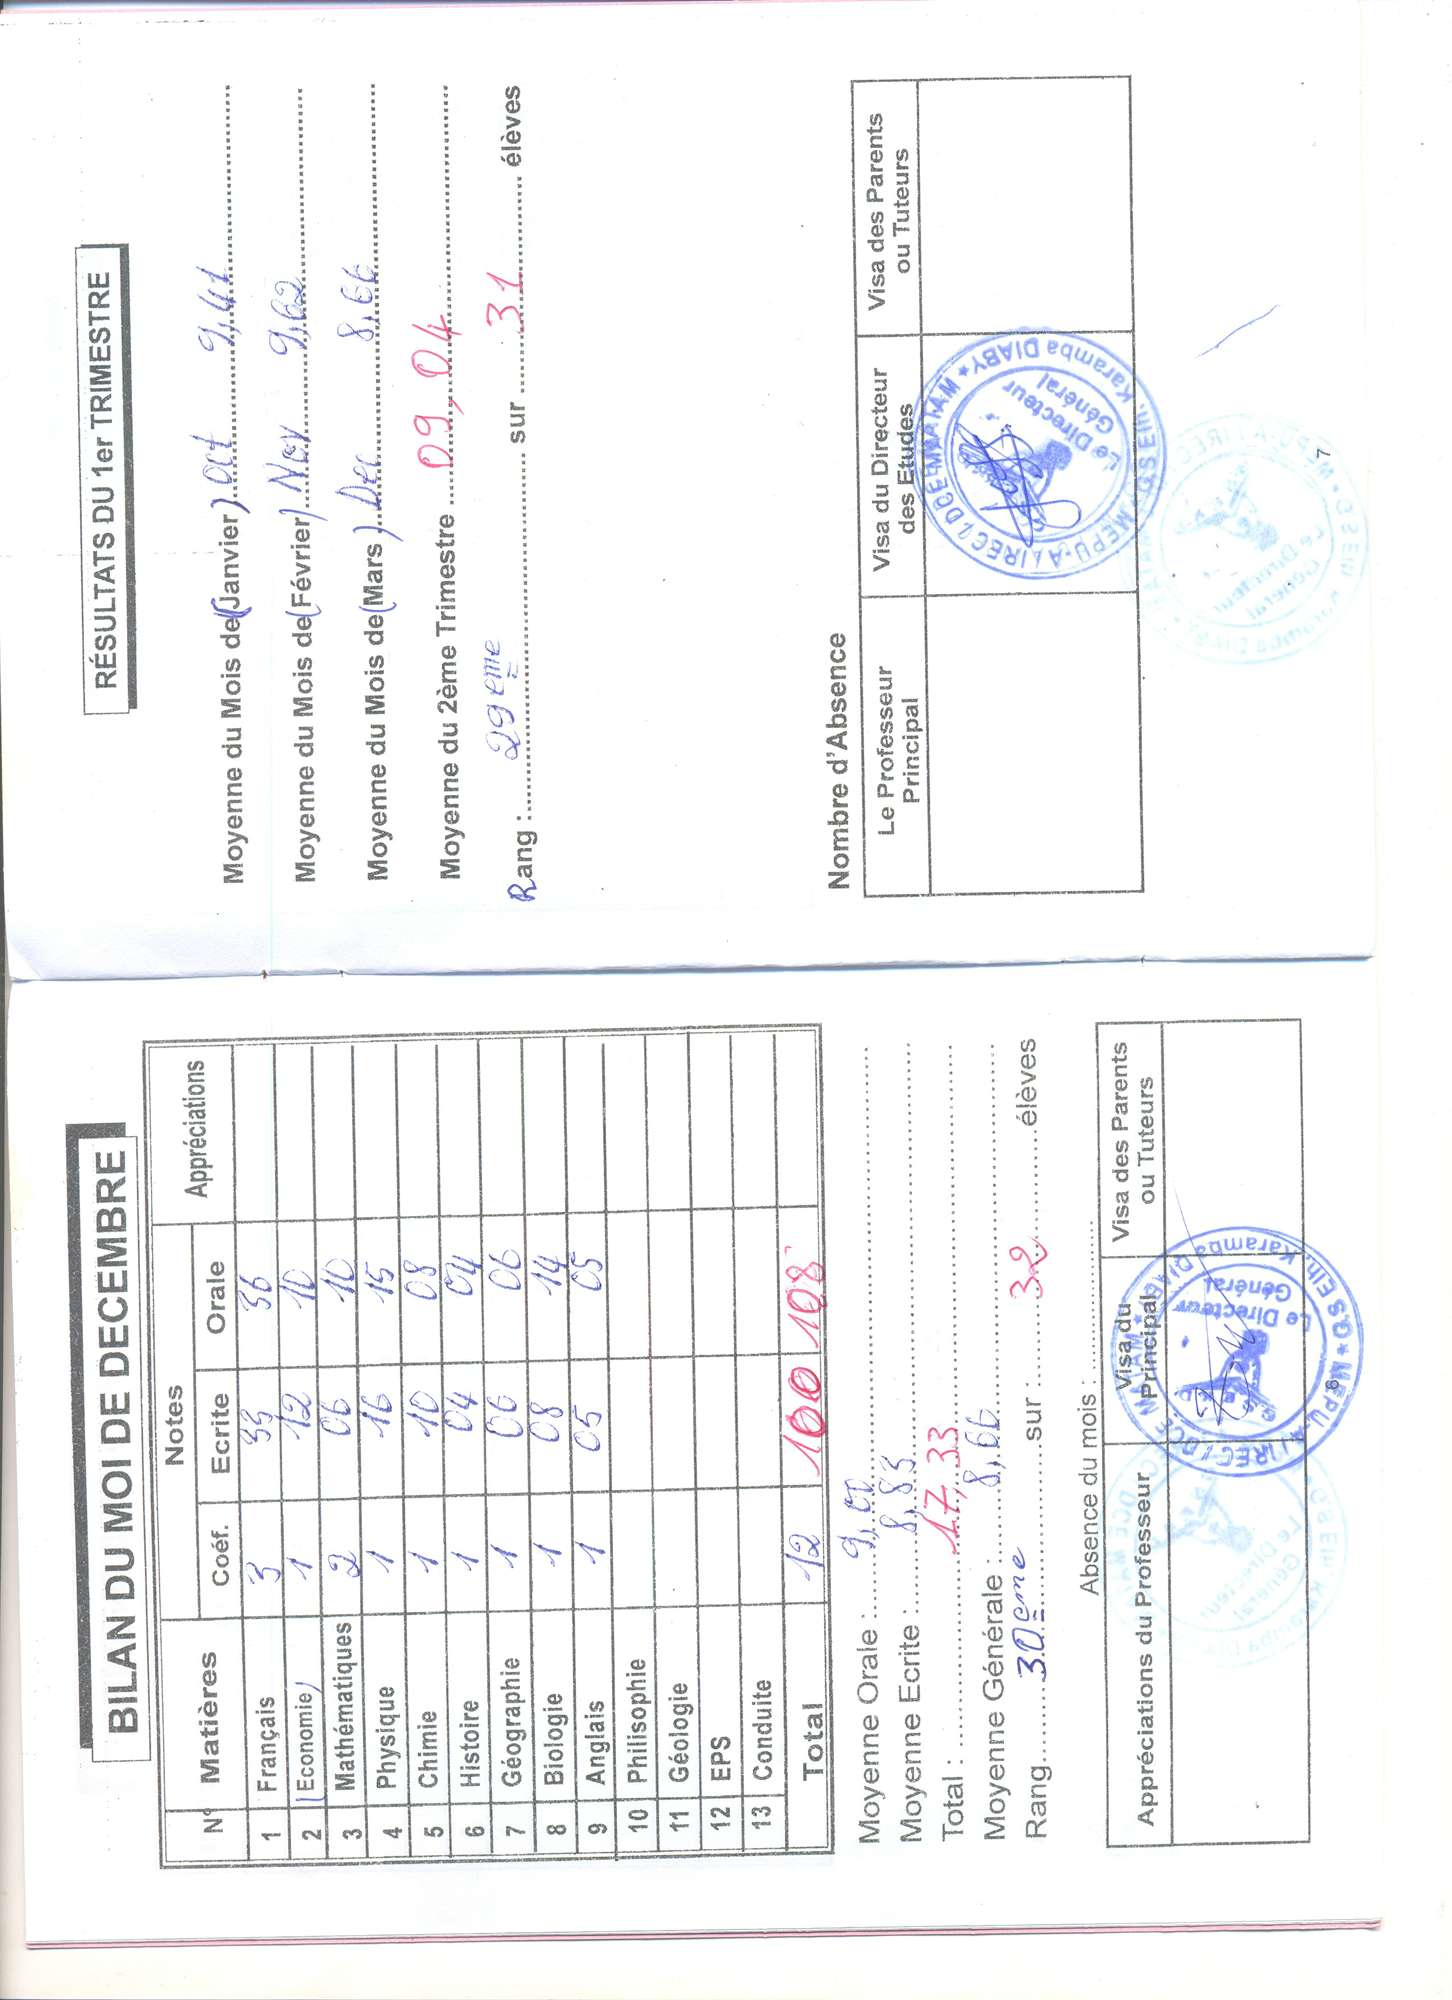 BILAN DU MOI DE DECEMBRE
N° Matières Notes Appréciations
Coéf. Ecrite Orale
1 Français 3 33 36
2 (Economie) 1 12 10
3 Mathématiques 2 06 10
4 Physique 1 16 15
5 Chimie 1 10 08
6 Histoire 1 04 04
7 Géographie 1 06 06
8 Biologie 1 08 14
9 Anglais 1 05 05
10 Philisophie
11 Géologie
12 EPS
13 Conduite
Total 12 100 108
Moyenne Orale : 9,00
Moyenne Ecrite : 8,83
Total : 17,33
Moyenne Générale : 8,66
Rang 30eme sur : 32 élèves
Absence du mois :
Appréciations du Professeur Visa du Principal Visa des Parents ou Tuteurs
MEPU-A/IREC/DCE MATAM * D.S Elh. Karamba DIABY *
Le Directeur
Général
6
RÉSULTATS DU 1er TRIMESTRE
Moyenne du Mois de (Janvier) oct 9,41
Moyenne du Mois de (Février) Nov 9,62
Moyenne du Mois de (Mars) Dec 8,66
Moyenne du 2ème Trimestre 09,04
Rang : 29eme sur 31 élèves
Nombre d'Absence
Le Professeur Principal Visa du Directeur des Etudes Visa des Parents ou Tuteurs
MEPU-A/IREC/DCE MATAM * D.S Elh. Karamba DIABY *
Le Directeur
Général
7